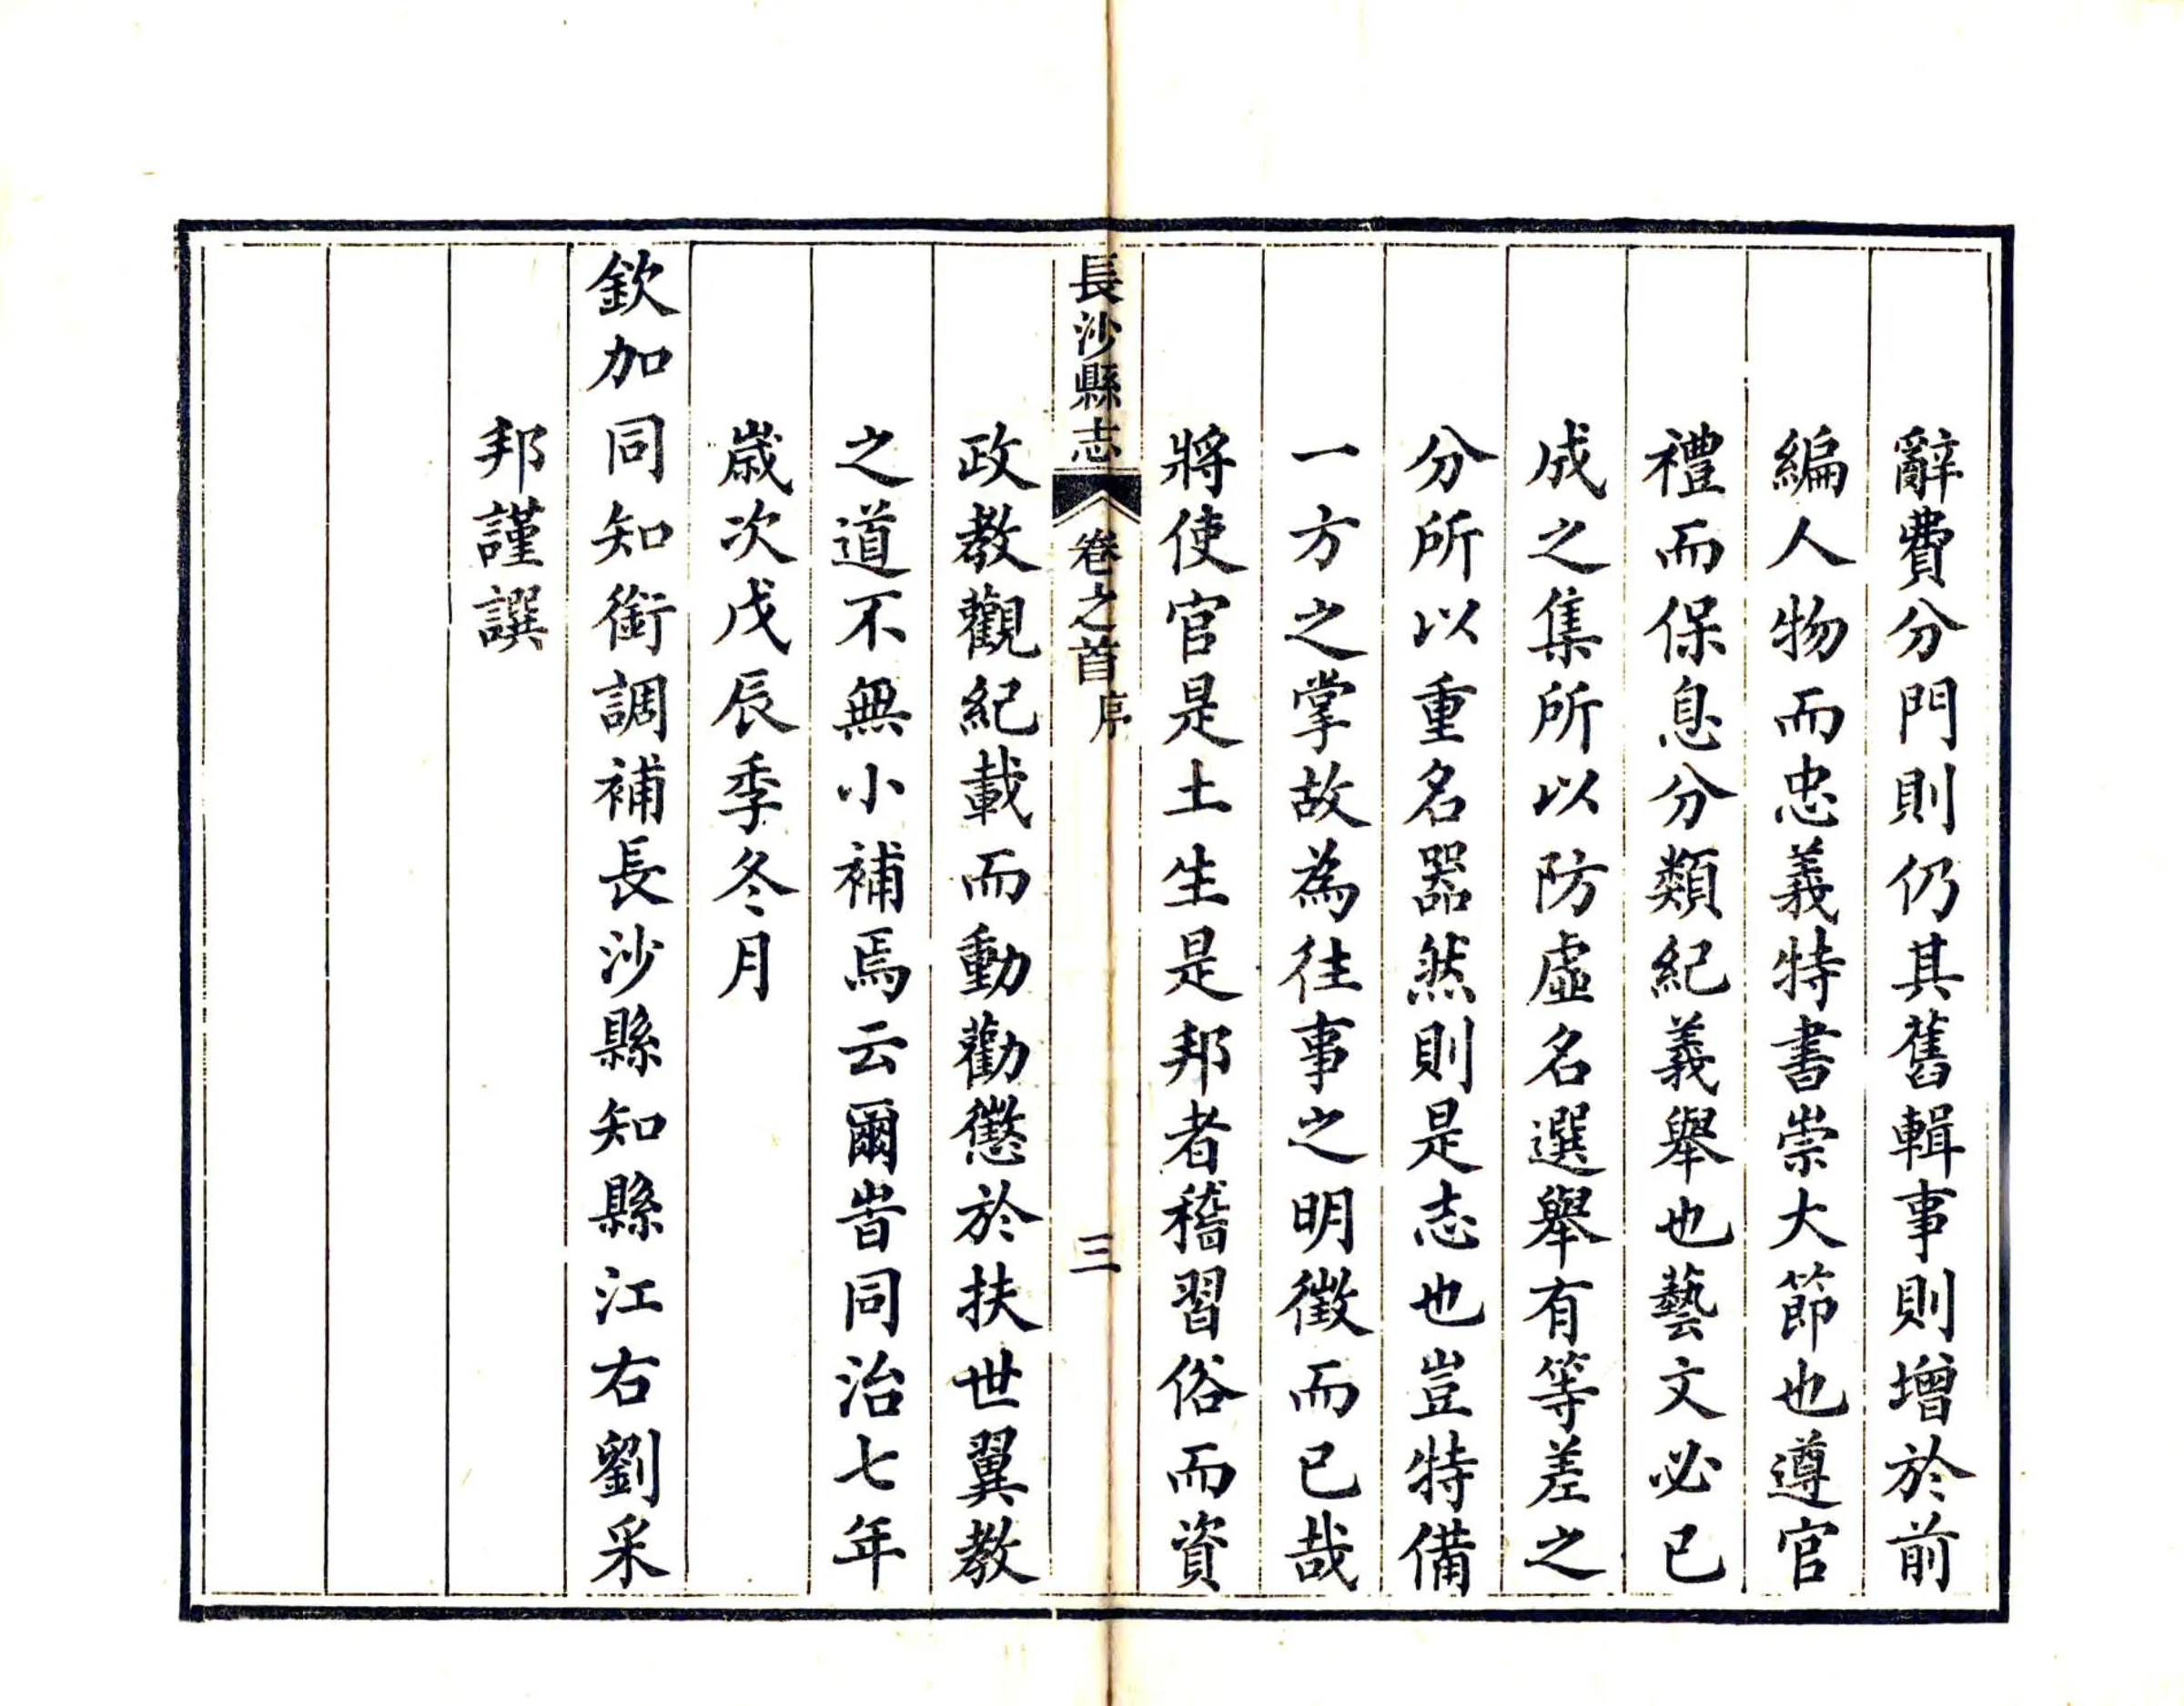 辭費分門則仍其舊輯事則增於前
編人物而忠義特書崇大節也遵官
禮而保息分類紀義舉也藝文必已
成之集所以防虛名選舉有等差之
分所以重名器然則是志也豈特備
一方之掌故為往事之明徵而已哉
將使官是土生是邦者稽習俗而資
長沙縣志 卷之首 序 三
政教觀紀載而動勸懲於扶世翼教
之道不無小補焉云爾旹同治七年
歲次戊辰季冬月
欽加同知銜調補長沙縣知縣江右劉采
邦謹譔